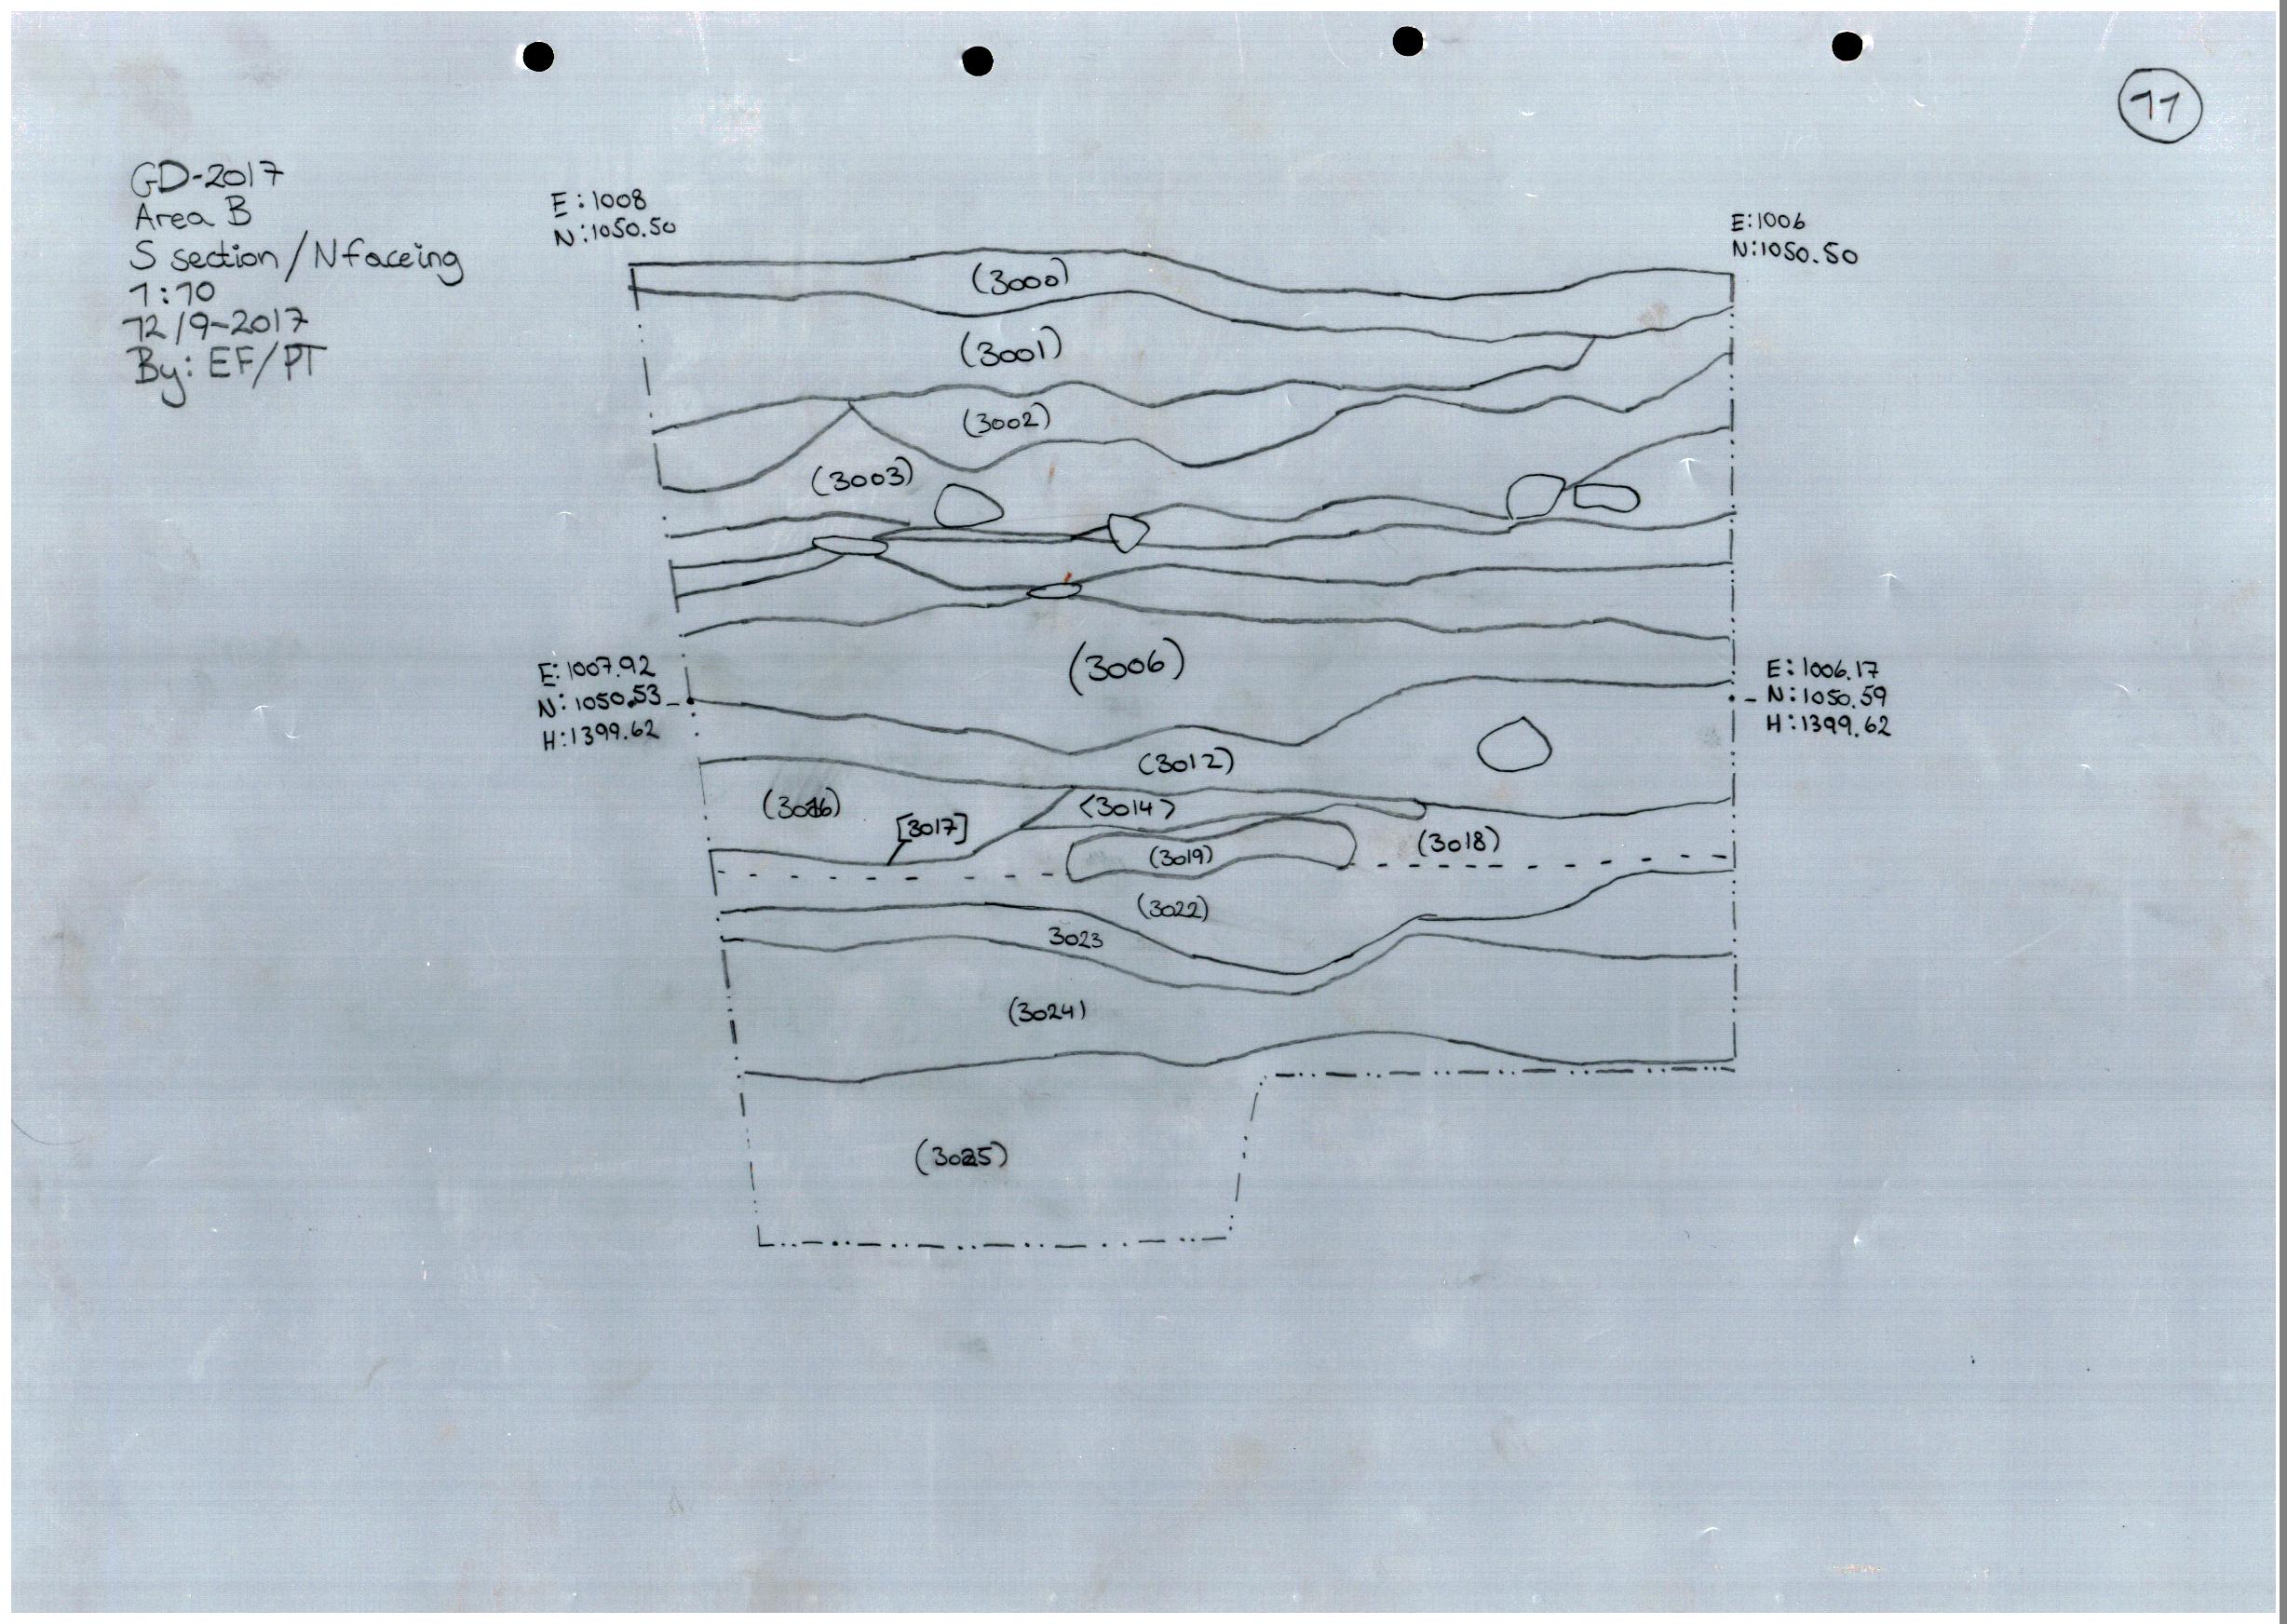 11
GD-2017
Area B
S section/N faceing
1:10
12/9-2017
By: EF/PT
E:1008
N:1050.50
E:1006
N:1050.50
(3000)
(3001)
(3002)
(3003)
(3006)
E:1007.92
N:1050.53
H:1399.62
E:1006.17
N:1050.59
H:1399.62
(3012)
(3014)
[3017]
(3018)
(3019)
(3022)
3023
(3024)
(3025)